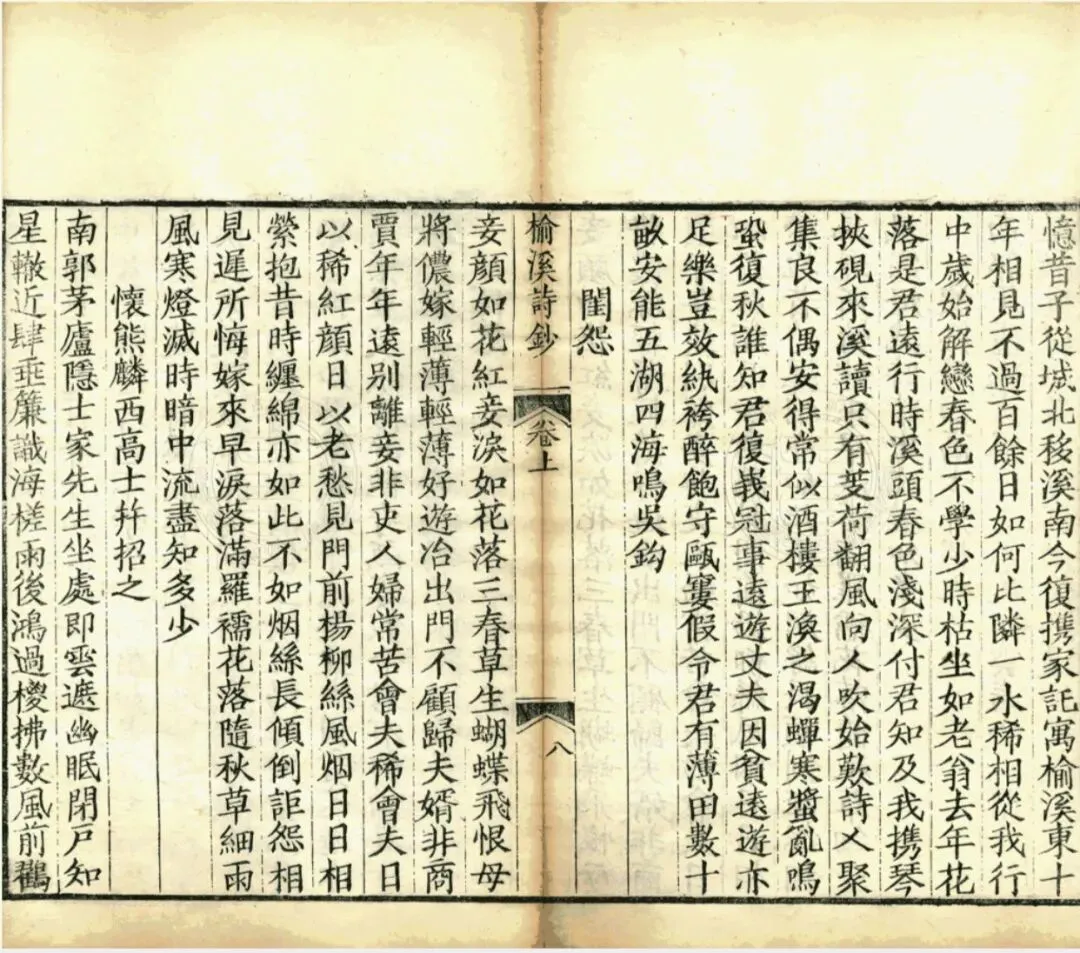 憶昔子從城北移溪南今復携家託寓榆溪東十
年相見不過百餘日如何比隣一水稀相從我行
中歲始解戀春色不學少時枯坐如老翁去年花
落是君遠行時溪頭春色淺深付君知及我携琴
挾硯來溪讀只有芰荷翻風向人吹始歎詩人聚
集良不偶安得常似酒樓王渙之渴蟬寒螿亂鳴
蛩復秋誰知君復峩冠事遠遊丈夫因貧遠遊亦
足樂豈效紈袴醉飽守甌窶假令君有薄田數十
畝安能五湖四海鳴吳鈎
閨怨
榆溪詩鈔 卷上 八
妾顏如花紅妾淚如花落三春草生蝴蝶飛恨母
將儂嫁輕薄輕薄好遊冶出門不顧歸夫婿非商
賈年年遠别離妾非吏人婦常苦會夫稀會夫日
以稀紅顏日以老愁見門前楊柳絲風烟日日相
縈抱昔時纏綿亦如此不如烟絲長傾倒詎怨相
見遲所悔嫁來早淚落滿羅襦花落隨秋草細雨
風寒燈滅時暗中流盡知多少
懷熊麟西高士幷招之
南郭茅廬隱士家先生坐處即雲遮幽眠閉戸知
星轍近肆垂簾識海槎雨後鴻過椶拂數風前鸛